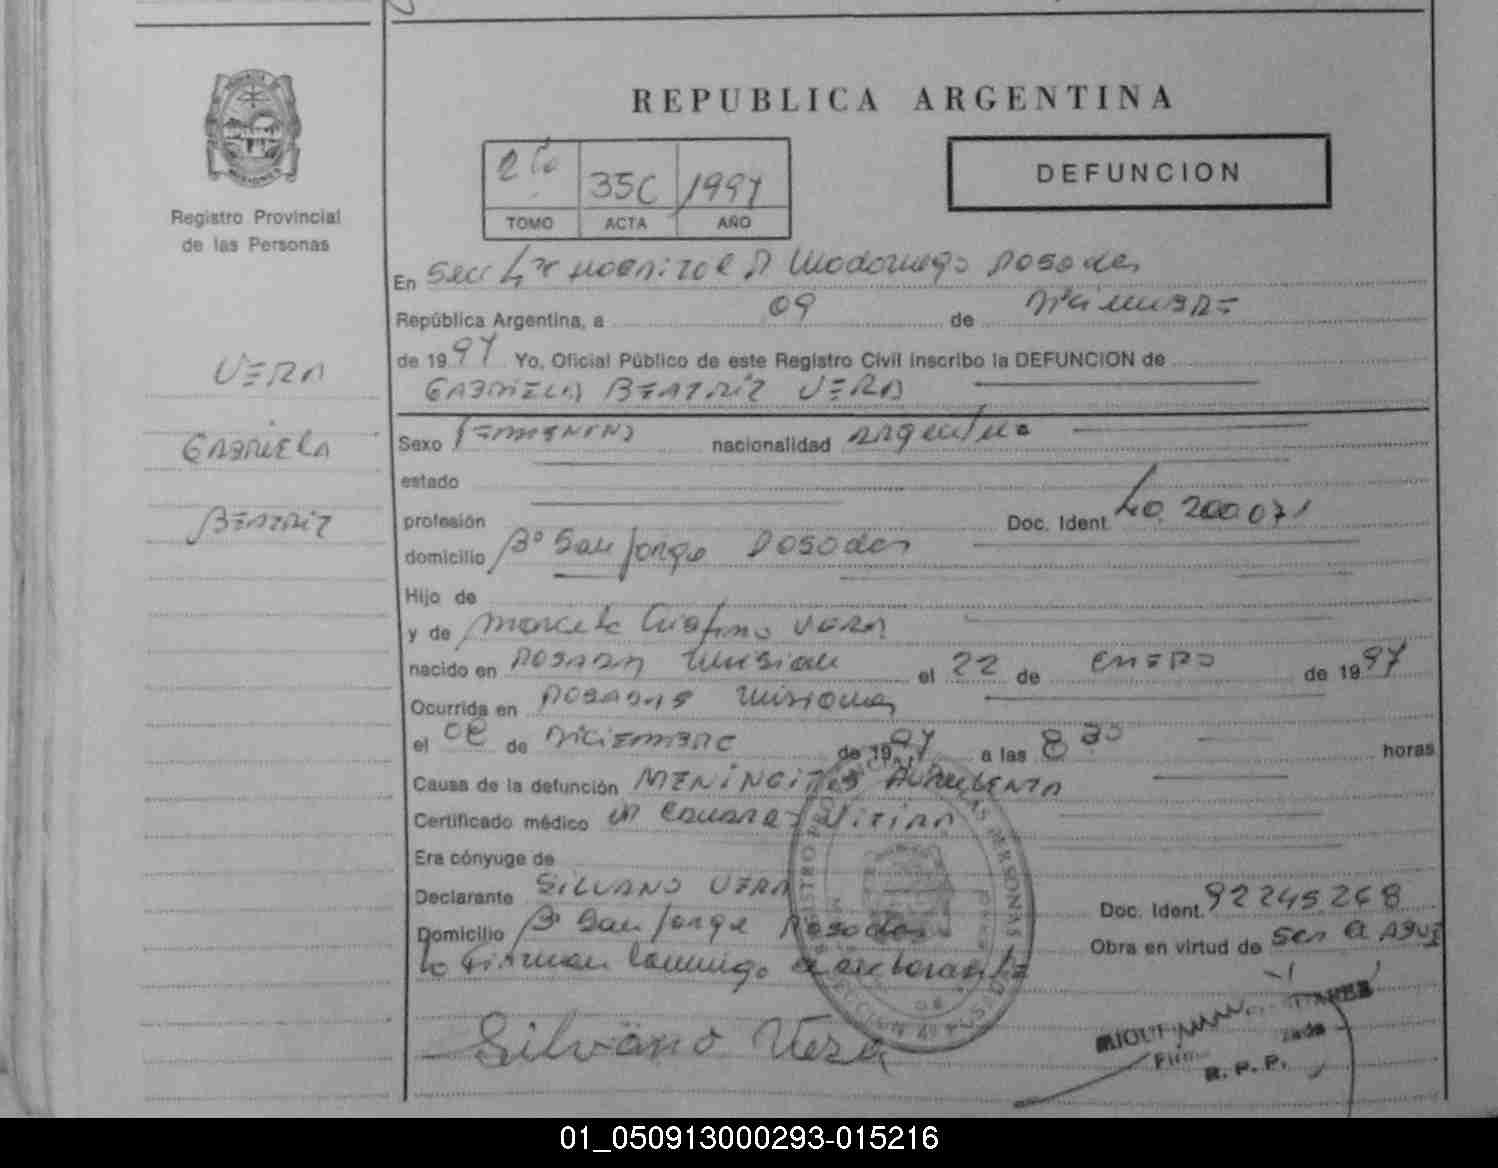 REPUBLICA ARGENTINA
DEFUNCION
35C 1997
TOMO ACTA AÑO
Registro Provincial
de las Personas
VERA
GABRIELA
BEATRIZ
En Secc Posadas
República Argentina, a 09 de Diciembre
de 1997 Yo, Oficial Público de este Registro Civil inscribo la DEFUNCION de
GABRIELA BEATRIZ VERA
Sexo FEMENINO nacionalidad argentina
estado
profesión Doc. Ident. 40.200.071
domicilio Bº San Jorge Posadas
Hijo de
y de VERA
nacido en POSADAS Misiones el 22 de ENERO de 1997
Ocurrida en POSADAS Misiones
el 08 de DICIEMBRE de 1997 a las 8 30 horas
Causa de la defunción MENINGITIS PURULENTA
Certificado médico
Era cónyuge de
Declarante SILVANO VERA Doc. Ident. 92245268
Domicilio Bº San Jorge Posadas Obra en virtud de Ser el
Firman conmigo el declarante
Silvano Vera
R. P. P.
01_050913000293-015216